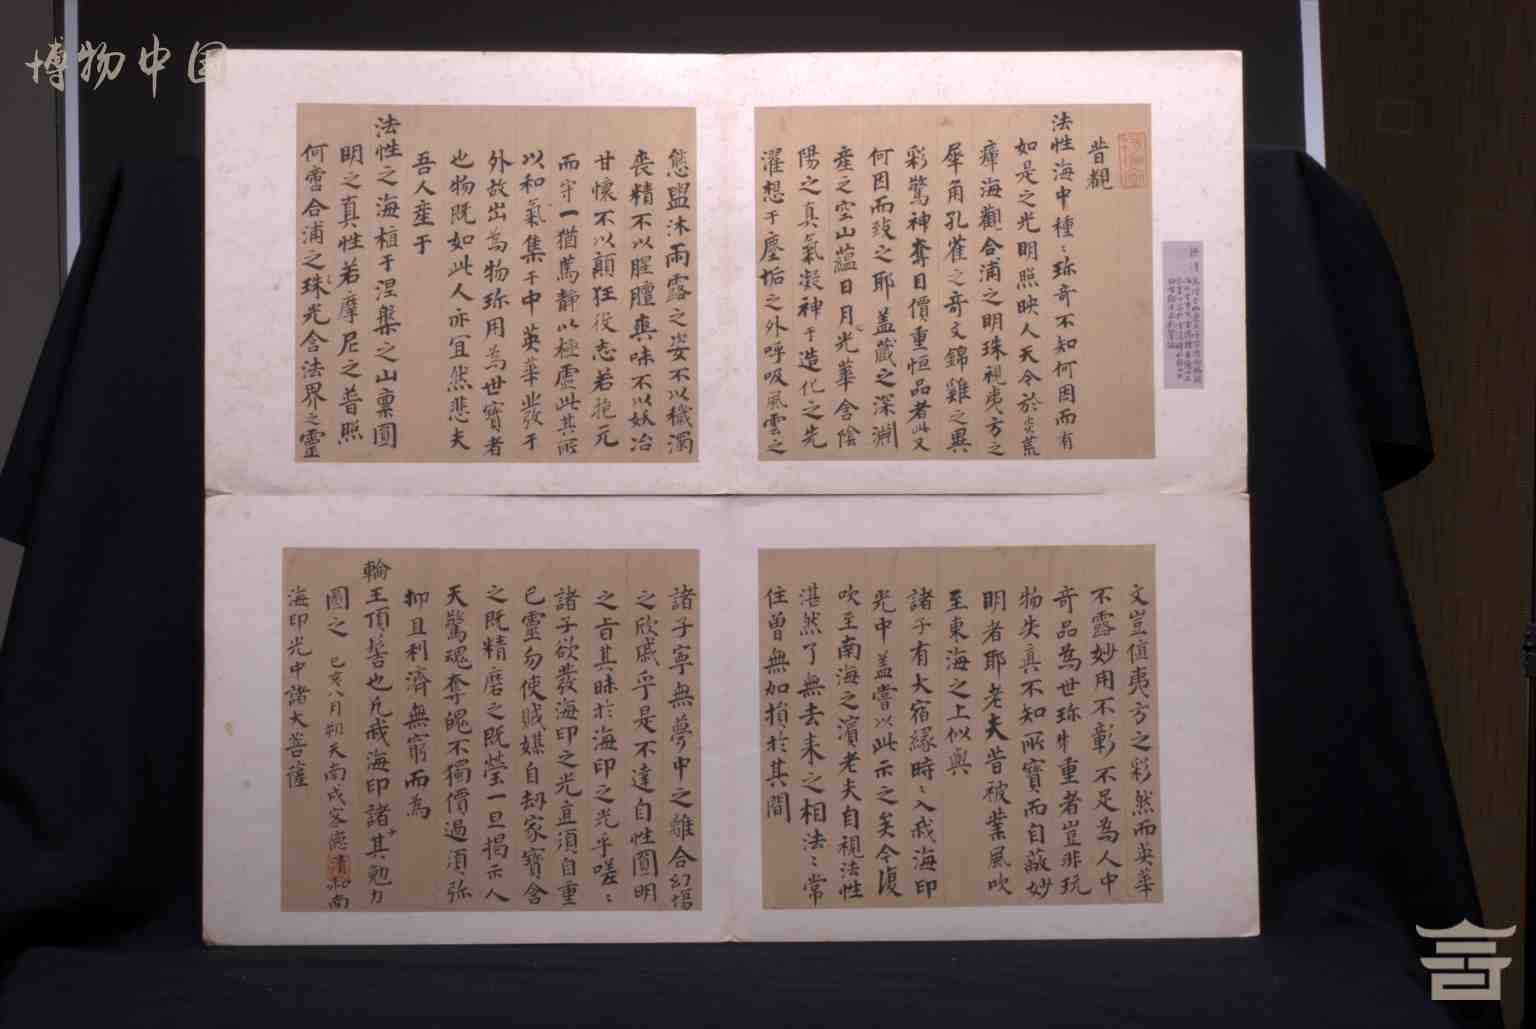 博物中国
昔觀
法性海中種〻珎奇不知何因而有
如是之光明照映人天今於炎荒
瘴海觀合浦之明珠視夷方之
犀角孔雀之奇文錦雞之異
彩驚神奪目價重恒品者此又
何因而致之耶盖藏之深淵
産之空山蘊日月光華含陰
陽之真氣凝神于造化之先
濯想于塵垢之外呼吸風雲之
態盥沐雨露之姿不以穢濁
喪精不以腥膻爽味不以妖冶
甘懷不以顛狂役志若抱元
而守一猶篤靜以極虛此其所
以和氣集于中英華發于
外故出為物珎用為世寶者
也物既如此人亦宜然悲夫
吾人産于
法性之海植于涅槃之山禀圓
明之真性若摩尼之普照
何啻合浦之珠光含法界之靈
文豈值夷方之彩然而英華
不露妙用不彰不足為人中
奇品為世珎重者豈非玩
物失真不知所寶而自蔽妙
明者耶老夫昔被業風吹
至東海之上似與
諸子有大宿緣時〻入我海印
光中盖嘗以此示之矣今復
吹至南海之濱老夫自視法性
湛然了無去来之相法〻常
住曾無加損於其間
諸子寧無夢中之離合幻場
之欣戚乎是不達自性圓明
之旨其昧於海印之光乎嗟〻
諸子欲發海印之光直須自重
已靈勿使賊媒自刼家寶含
之既精磨之既瑩一旦揭示人
天驚魂奪魄不獨價過須弥
抑且利濟無窮而為
輪王頂髻也凡我海印諸其勉力
圖之 己亥八月朔天南戍客德清和南
海印光中諸大菩薩